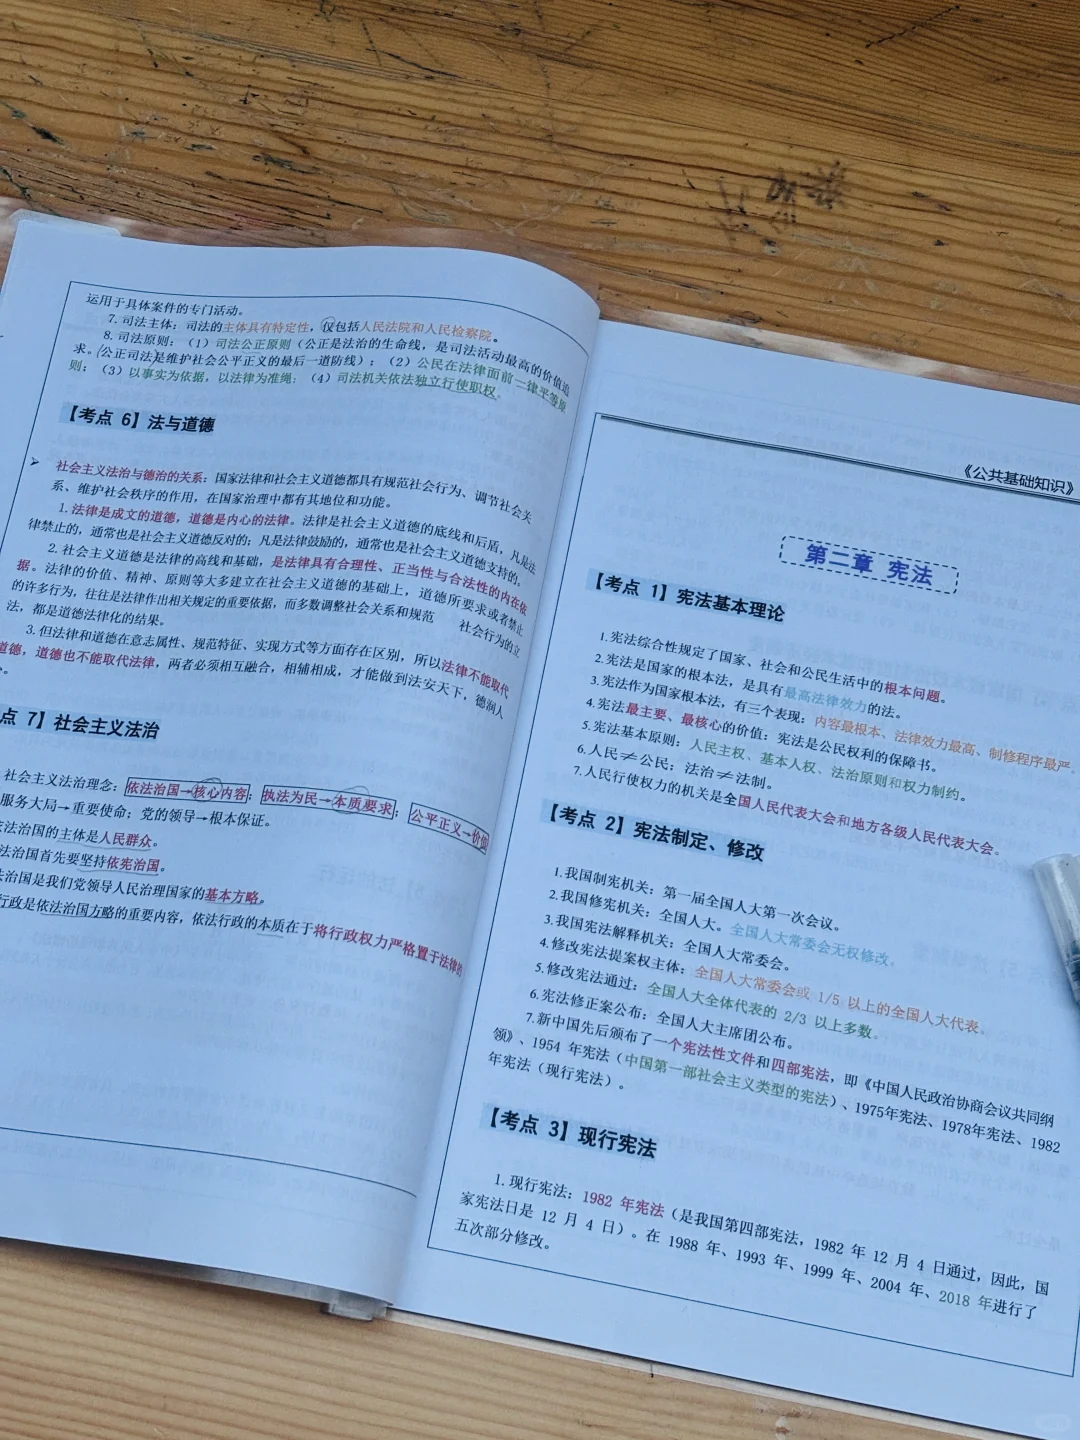 运用于具体案件的专门活动。
7. 司法主体：司法的主体具有特定性，仅包括人民法院和人民检察院。
8. 司法原则：（1）司法公正原则（公正是法治的生命线，是司法活动最高的价值追
求。公正司法是维护社会公平正义的最后一道防线）；（2）公民在法律面前一律平等原
则；（3）以事实为依据，以法律为准绳；（4）司法机关依法独立行使职权。
【考点 6】法与道德
➢ 社会主义法治与德治的关系：国家法律和社会主义道德都具有规范社会行为、调节社会关
系、维护社会秩序的作用，在国家治理中都有其地位和功能。
1. 法律是成文的道德，道德是内心的法律。法律是社会主义道德的底线和后盾，凡是法
律禁止的，通常也是社会主义道德反对的；凡是法律鼓励的，通常也是社会主义道德支持的。
2. 社会主义道德是法律的高线和基础，是法律具有合理性、正当性与合法性的内在依
据。法律的价值、精神、原则等大多建立在社会主义道德的基础上，道德所要求或者禁止
的许多行为，往往是法律作出相关规定的重要依据，而多数调整社会关系和规范 社会行为的立
法，都是道德法律化的结果。
3. 但法律和道德在意志属性、规范特征、实现方式等方面存在区别，所以法律不能取代
道德，道德也不能取代法律，两者必须相互融合，相辅相成，才能做到法安天下，德润人
点 7】社会主义法治
社会主义法治理念：依法治国→核心内容；执法为民→本质要求；公平正义→价值
服务大局→重要使命；党的领导→根本保证。
法治国的主体是人民群众。
法治国首先要坚持依宪治国。
法治国是我们党领导人民治理国家的基本方略。
行政是依法治国方略的重要内容，依法行政的本质在于将行政权力严格置于法律的
《公共基础知识》
第二章 宪法
【考点 1】宪法基本理论
1.宪法综合性规定了国家、社会和公民生活中的根本问题。
2.宪法是国家的根本法，是具有最高法律效力的法。
3.宪法作为国家根本法，有三个表现：内容最根本、法律效力最高、制修程序最严。
4.宪法最主要、最核心的价值：宪法是公民权利的保障书。
5.宪法基本原则：人民主权、基本人权、法治原则和权力制约。
6.人民≠公民；法治≠法制。
7.人民行使权力的机关是全国人民代表大会和地方各级人民代表大会。
【考点 2】宪法制定、修改
1.我国制宪机关：第一届全国人大第一次会议。
2.我国修宪机关：全国人大。全国人大常委会无权修改。
3.我国宪法解释机关：全国人大常委会。
4.修改宪法提案权主体：全国人大常委会或 1/5 以上的全国人大代表。
5.修改宪法通过：全国人大全体代表的 2/3 以上多数。
6.宪法修正案公布：全国人大主席团公布。
7.新中国先后颁布了一个宪法性文件和四部宪法，即《中国人民政治协商会议共同纲
领》、1954 年宪法（中国第一部社会主义类型的宪法）、1975年宪法、1978年宪法、1982
年宪法（现行宪法）。
【考点 3】现行宪法
1. 现行宪法：1982 年宪法（是我国第四部宪法，1982 年 12 月 4 日通过，因此，国
家宪法日是 12 月 4 日）。在 1988 年、1993 年、1999 年、2004 年、2018 年进行了
五次部分修改。